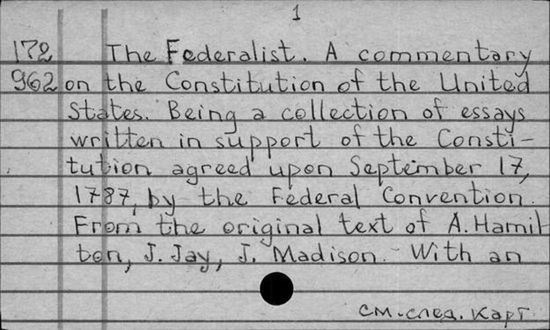 1
172 The Federalist. A commentary
962 on the Constitution of the United
States. Being a collection of essays
written in support of the Consti-
tution agreed upon September 17,
1787, by the Federal Convention.
From the original text of A. Hamil
ton, J. Jay, J. Madison. With an
см. след. карт.